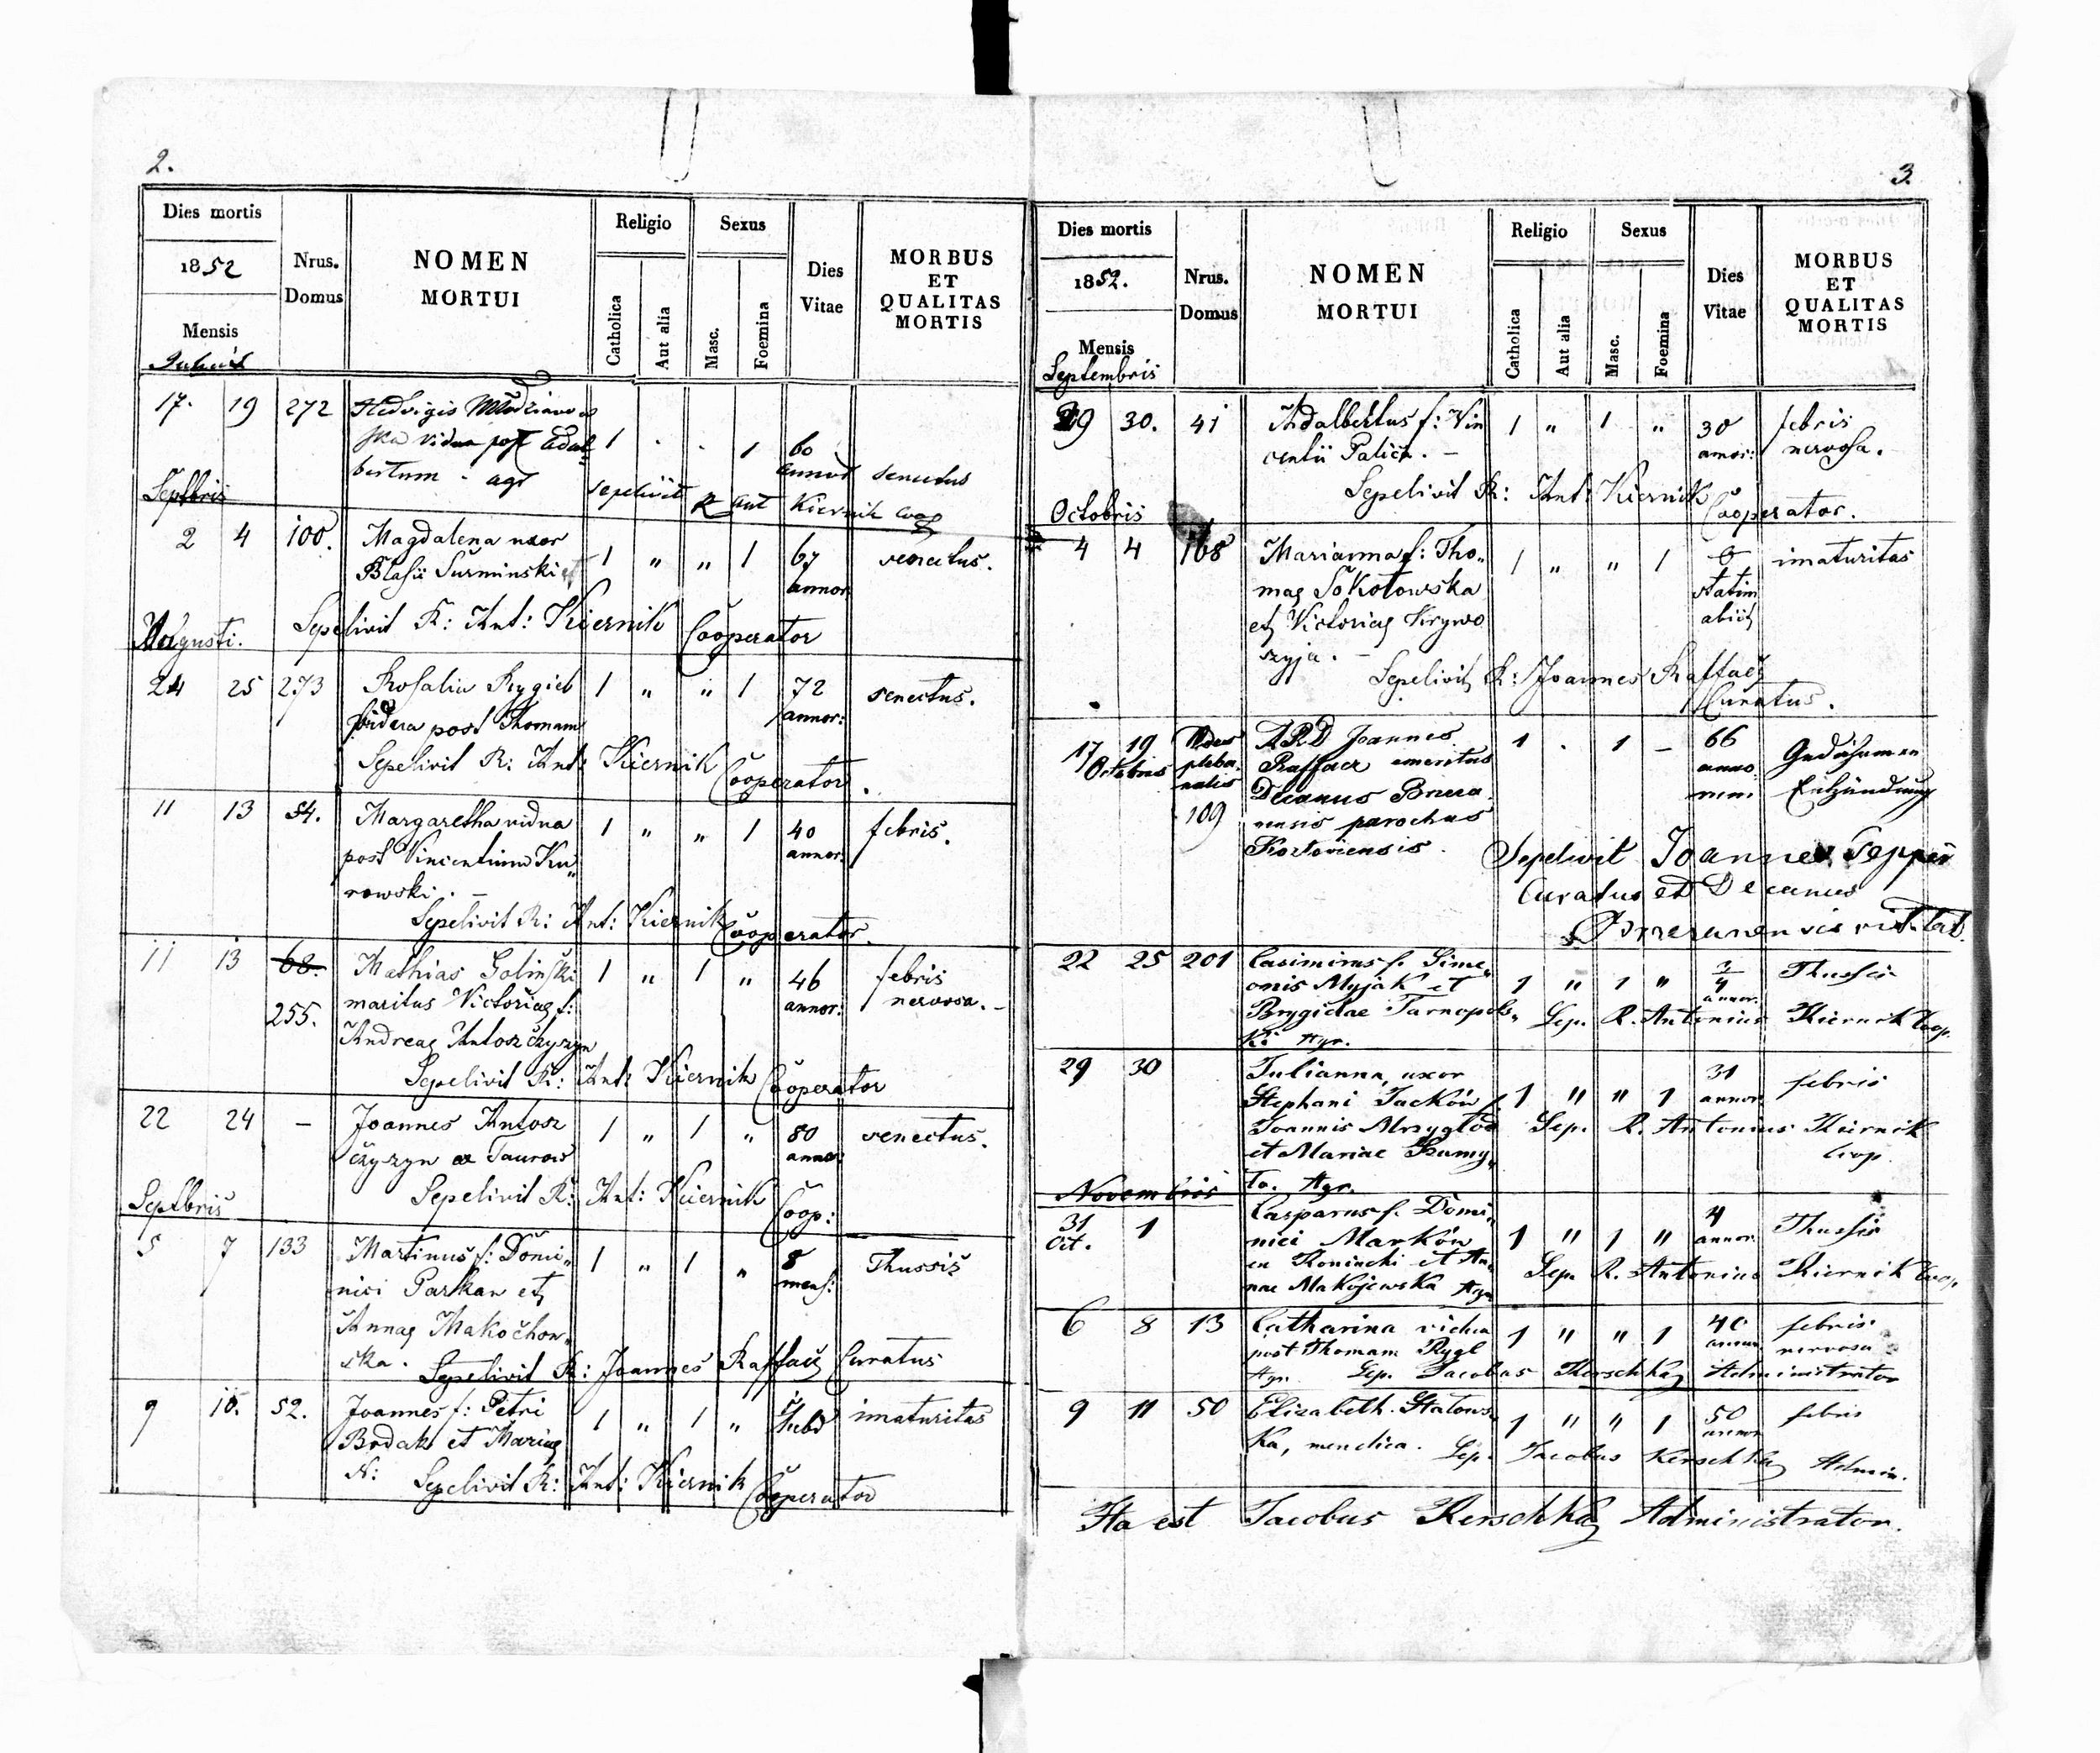 2.
Dies mortis
1852
Mensis
Nrus.
Domus
NOMEN
MORTUI
Religio
Catholica
Aut alia
Sexus
Masc.
Foemina
Dies
Vitae
MORBUS
ET
QUALITAS
MORTIS
17. 19 272 Hedvigis
ska vidua post Adal 1 . . 1 60
bertum - agr annor senectus
Septbris sepelivit R Ant Kiernik Coop
2 4 100. Magdalena uxor
Blasii Surminski 1 " " 1 67 senectus.
annor
Sepelivit R: Ant: Kiernik Cooperator
Augusti.
24 25 273 Rosalia Rygiel 1 " " 1 72 senectus.
vidua post Thomam annor:
Sepelivit R: Ant: Kiernik Cooperator.
11 13 54. Margaretha vidua 1 " " 1 40 febris.
post Vincentium Ku„ annor:
rowski. –
Sepelivit R: Ant: Kiernik Cooperator.
11 13 68. Mathias Golinski 1 " 1 " 46 febris
255. maritus Victoriae f: annor: nervosa. –
Andreae Antoszczyszyn
Sepelivit R: Ant: Kiernik Cooperator
22 24 – Joannes Antosz 1 " 1 " 80 senectus.
czyszyn ex Taurow annor:
Sepelivit R: Ant: Kiernik Coop:
Septbris
5 7 133 Martinus f: Domi„ 1 " 1 " 8 Thussis
nici Parkan et mens:
Annae Makochow„
ska. Sepelivit R: Joannes Raffacz Curatus
9 10. 52. Joannes f: Petri 1 " 1 " imaturitas
Bodak et Mariae
N: Sepelivit R: Ant: Kiernik Cooperator
3.
Dies mortis
1852.
Mensis
Septembris
Nrus.
Domus
NOMEN
MORTUI
Religio
Catholica
Aut alia
Sexus
Masc.
Foemina
Dies
Vitae
MORBUS
ET
QUALITAS
MORTIS
29 30. 41 Adalbertus f: Vin 1 " 1 " 30 febris
centii Palica. – annor: nervosa.
Sepelivit R: Ant: Kiernik
Octobris Cooperator.
4 4 108 Marianna f: Tho„ 1 " " 1 imaturitas
mae Sokołowska statim
et Victoriae Krywo abiit
szyja. –
Sepelivit R: Joannes Raffacz
Curatus.
17 19 Aedes ARD Joannes 1 . 1 – 66
Octobris pleba„ Raffacz emeritus anno
nalis Decanus Brzeza„ rum Entzündung
109 nensis parochus
Kozloviensis. Sepelivit Joannes
Curatus et Decanus
22 25 201 Casimirus f. Sime„
onis Myjak et 1 " 1 " 3/4 Thussis
annor.
Brygidae Tarnopols„ Sep. R. Antonius Kiernik Coop.
ki Agr.
29 30 Julianna, uxor 31
Stephani Jacków f. 1 " " 1 annor febris
Joannis Mrzygłod Sep. R. Antonius Kiernik
et Mariae Szumy„ Coop.
Novembris ta. Agr.
31 1 Casparus f. Domi„ 4
Oct. nici Marków 1 " 1 " annor. Thussis
en Koninski et An„ Sep. R. Antonius Kiernik Coop.
nae Makojewska Agr
6 8 13 Catharina vidua 1 " " 1 40 febris
post Thomam Rygl annor nervosa
Agr. Sep. Jacobus Kerschka Administrator
9 11 50 Elisabeth. Statows„ 1 " " 1 50 febris
annor
ka, mendica. Sep. Jacobus Kerschka Admin.
Ita est Jacobus Kerschka Administrator.